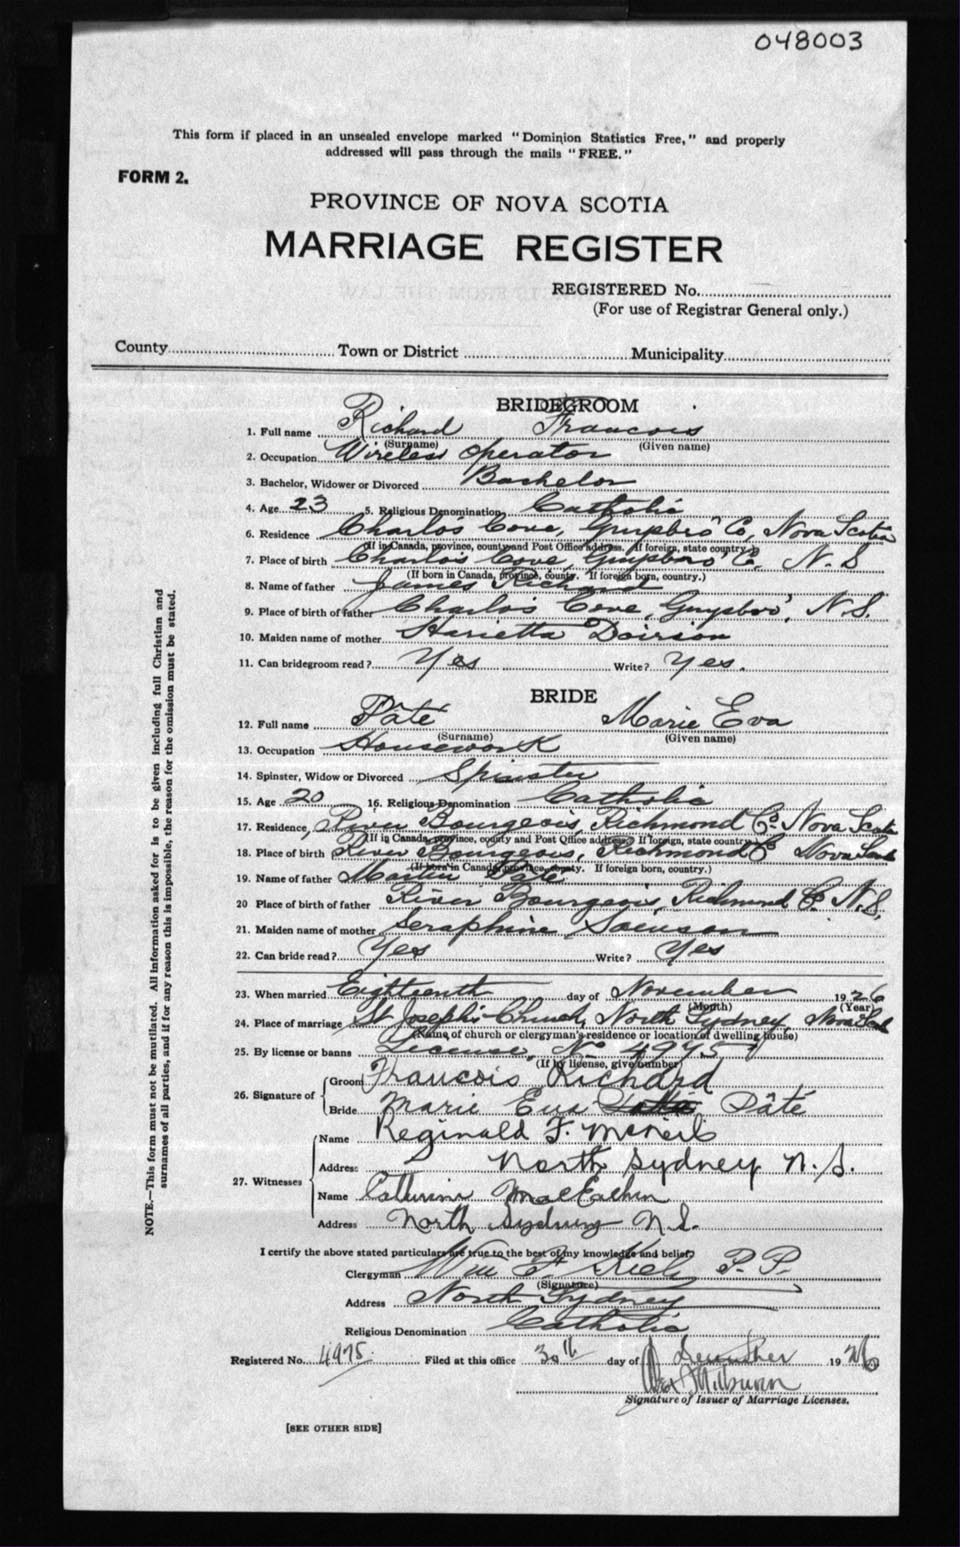 048003
This form if placed in an unsealed envelope marked "Dominion Statistics Free," and properly
addressed will pass through the mails "FREE."
FORM 2.
PROVINCE OF NOVA SCOTIA
MARRIAGE REGISTER
REGISTERED No.
(For use of Registrar General only.)
County Town or District Municipality
BRIDEGROOM
1. Full name Richard Francois
(Surname) (Given name)
2. Occupation Wireless Operator
3. Bachelor, Widower or Divorced Bachelor
4. Age 23 5. Religious Denomination Catholic
6. Residence Charlo's Cove, Guysboro' Co, Nova Scotia
(If in Canada, province, county and Post Office address. If foreign, state country.)
7. Place of birth Charlo's Cove, Guysboro' Co, N.S
(If born in Canada, province, county. If foreign born, country.)
8. Name of father James Richard
9. Place of birth of father Charlo's Cove, Guysboro', N.S.
10. Maiden name of mother Harietta
11. Can bridegroom read? Yes Write? Yes.
BRIDE
12. Full name Pâté Marie Eva
(Surname) (Given name)
13. Occupation Housework
14. Spinster, Widow or Divorced Spinster
15. Age 20 16. Religious Denomination Catholic
17. Residence River Bourgeois, Richmond Co. Nova Scotia
(If in Canada, province, county and Post Office address. If foreign, state country.)
18. Place of birth River Bourgeois, Richmond Co Nova Scotia
(If born in Canada, province, county. If foreign born, country.)
19. Name of father Martin Pate
20 Place of birth of father River Bourgeois, Richmond Co. N.S.
21. Maiden name of mother Seraphine
22. Can bride read? Yes Write? Yes
23. When married Eighteenth day of November 1926
(Month) (Year)
24. Place of marriage St Joseph's Church, North Sydney, Nova Scotia
(Name of church or clergyman's residence or location of dwelling house)
25. By license or banns License, No 4975
(If by license, give number)
26. Signature of
Groom Francois Richard
Bride Marie Eva Pâté
27. Witnesses
Name Reginald F. McNeil
Address North Sydney N.S.
Name Catherine MacEachern
Address North Sydney N.S.
I certify the above stated particulars are true to the best of my knowledge and belief.
Clergyman Wm F. Kiely P.P.
(Signature)
Address North Sydney
Religious Denomination Catholic
Registered No. 4975 Filed at this office 30th day of December 1926
Signature of Issuer of Marriage Licenses.
[SEE OTHER SIDE]
NOTE.—This form must not be mutilated. All information asked for is to be given including full Christian and
surnames of all parties, and if for any reason this is impossible, the reason for the omission must be stated.